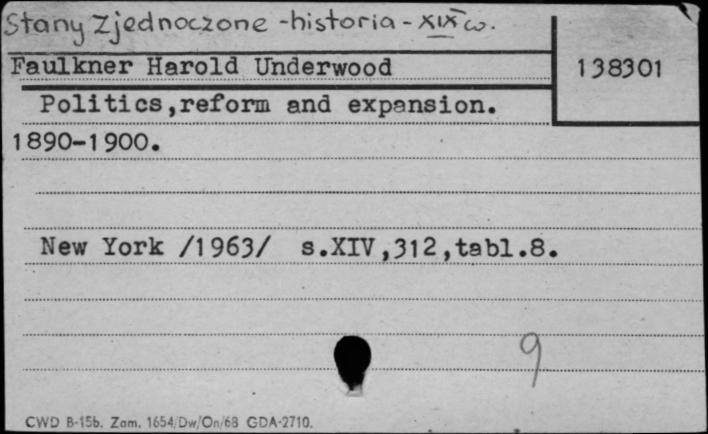 Stany Zjednoczone -historia- XIX w.
Faulkner Harold Underwood
138301
Politics,reform and expansion.
1890-1900.
New York /1963/ s.XIV,312,tabl.8.
9
CWD B-15b. Zam. 1654/Dw/On/68 GDA-2710.